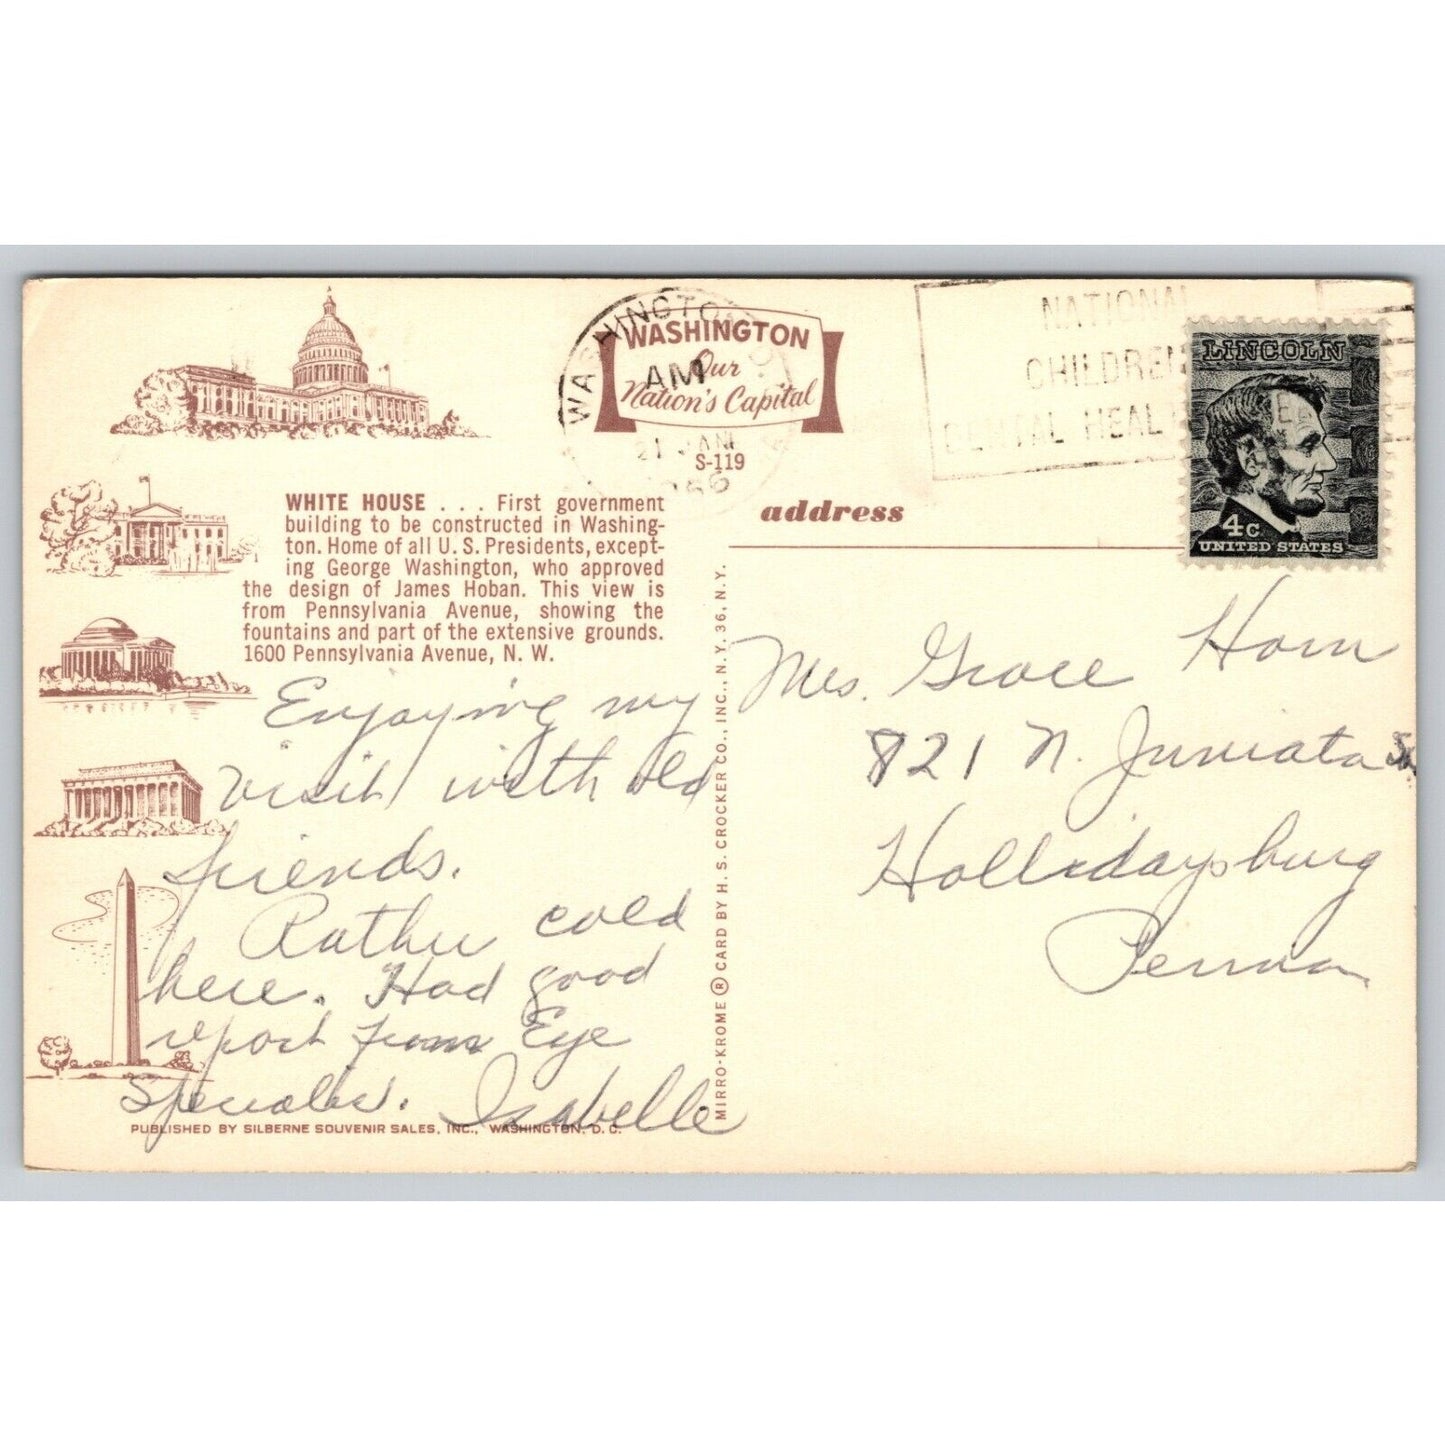 WASHINGTON
Our
Nation's Capital
S-119
WASHINGTON
AM
21 JAN
1966
NATIONAL
CHILDREN
DENTAL HEAL
LINCOLN
4c
UNITED STATES
WHITE HOUSE . . . First government
building to be constructed in Washing-
ton. Home of all U. S. Presidents, except-
ing George Washington, who approved
the design of James Hoban. This view is
from Pennsylvania Avenue, showing the
fountains and part of the extensive grounds.
1600 Pennsylvania Avenue, N. W.
Enjoying my
visit with old
friends.
Rather cold
here. Had good
report from Eye
Specialist. Isabelle
PUBLISHED BY SILBERNE SOUVENIR SALES, INC., WASHINGTON, D. C.
MIRRO-KROME ® CARD BY H. S. CROCKER CO., INC., N.Y. 36, N.Y.
address
Mrs. Grace Horn
821 N. Juniata St.
Hollidaysburg
Penna